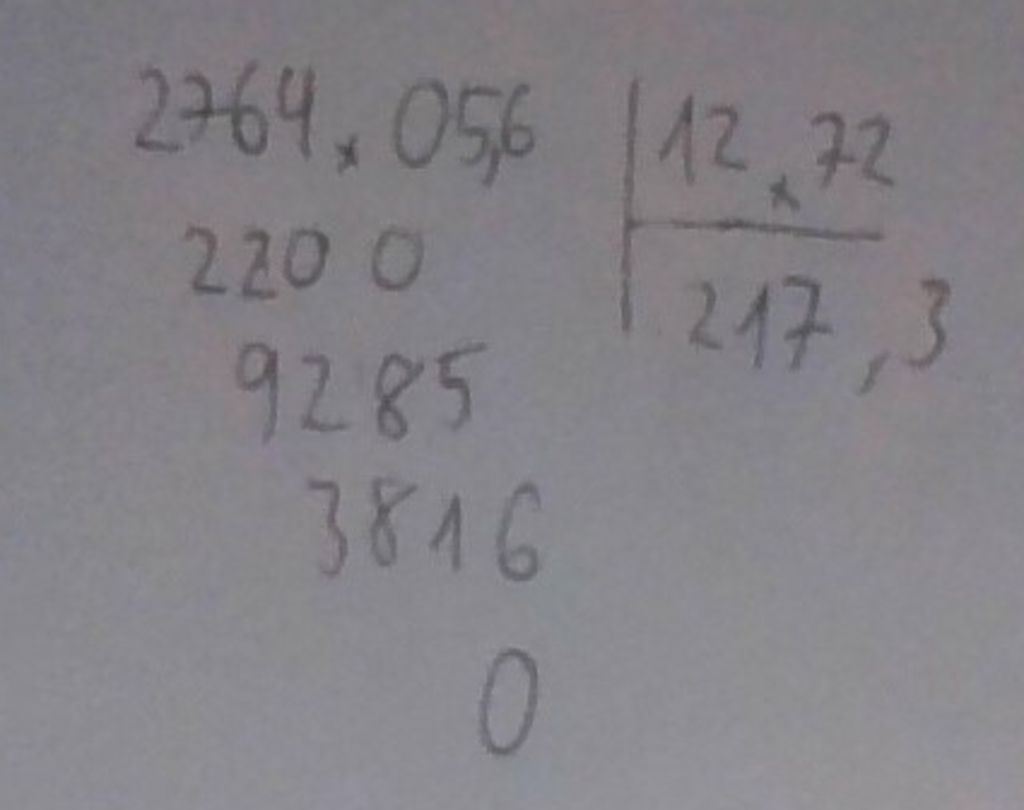 2764×05,6 12×72
2200 217,3
9285
3816
0